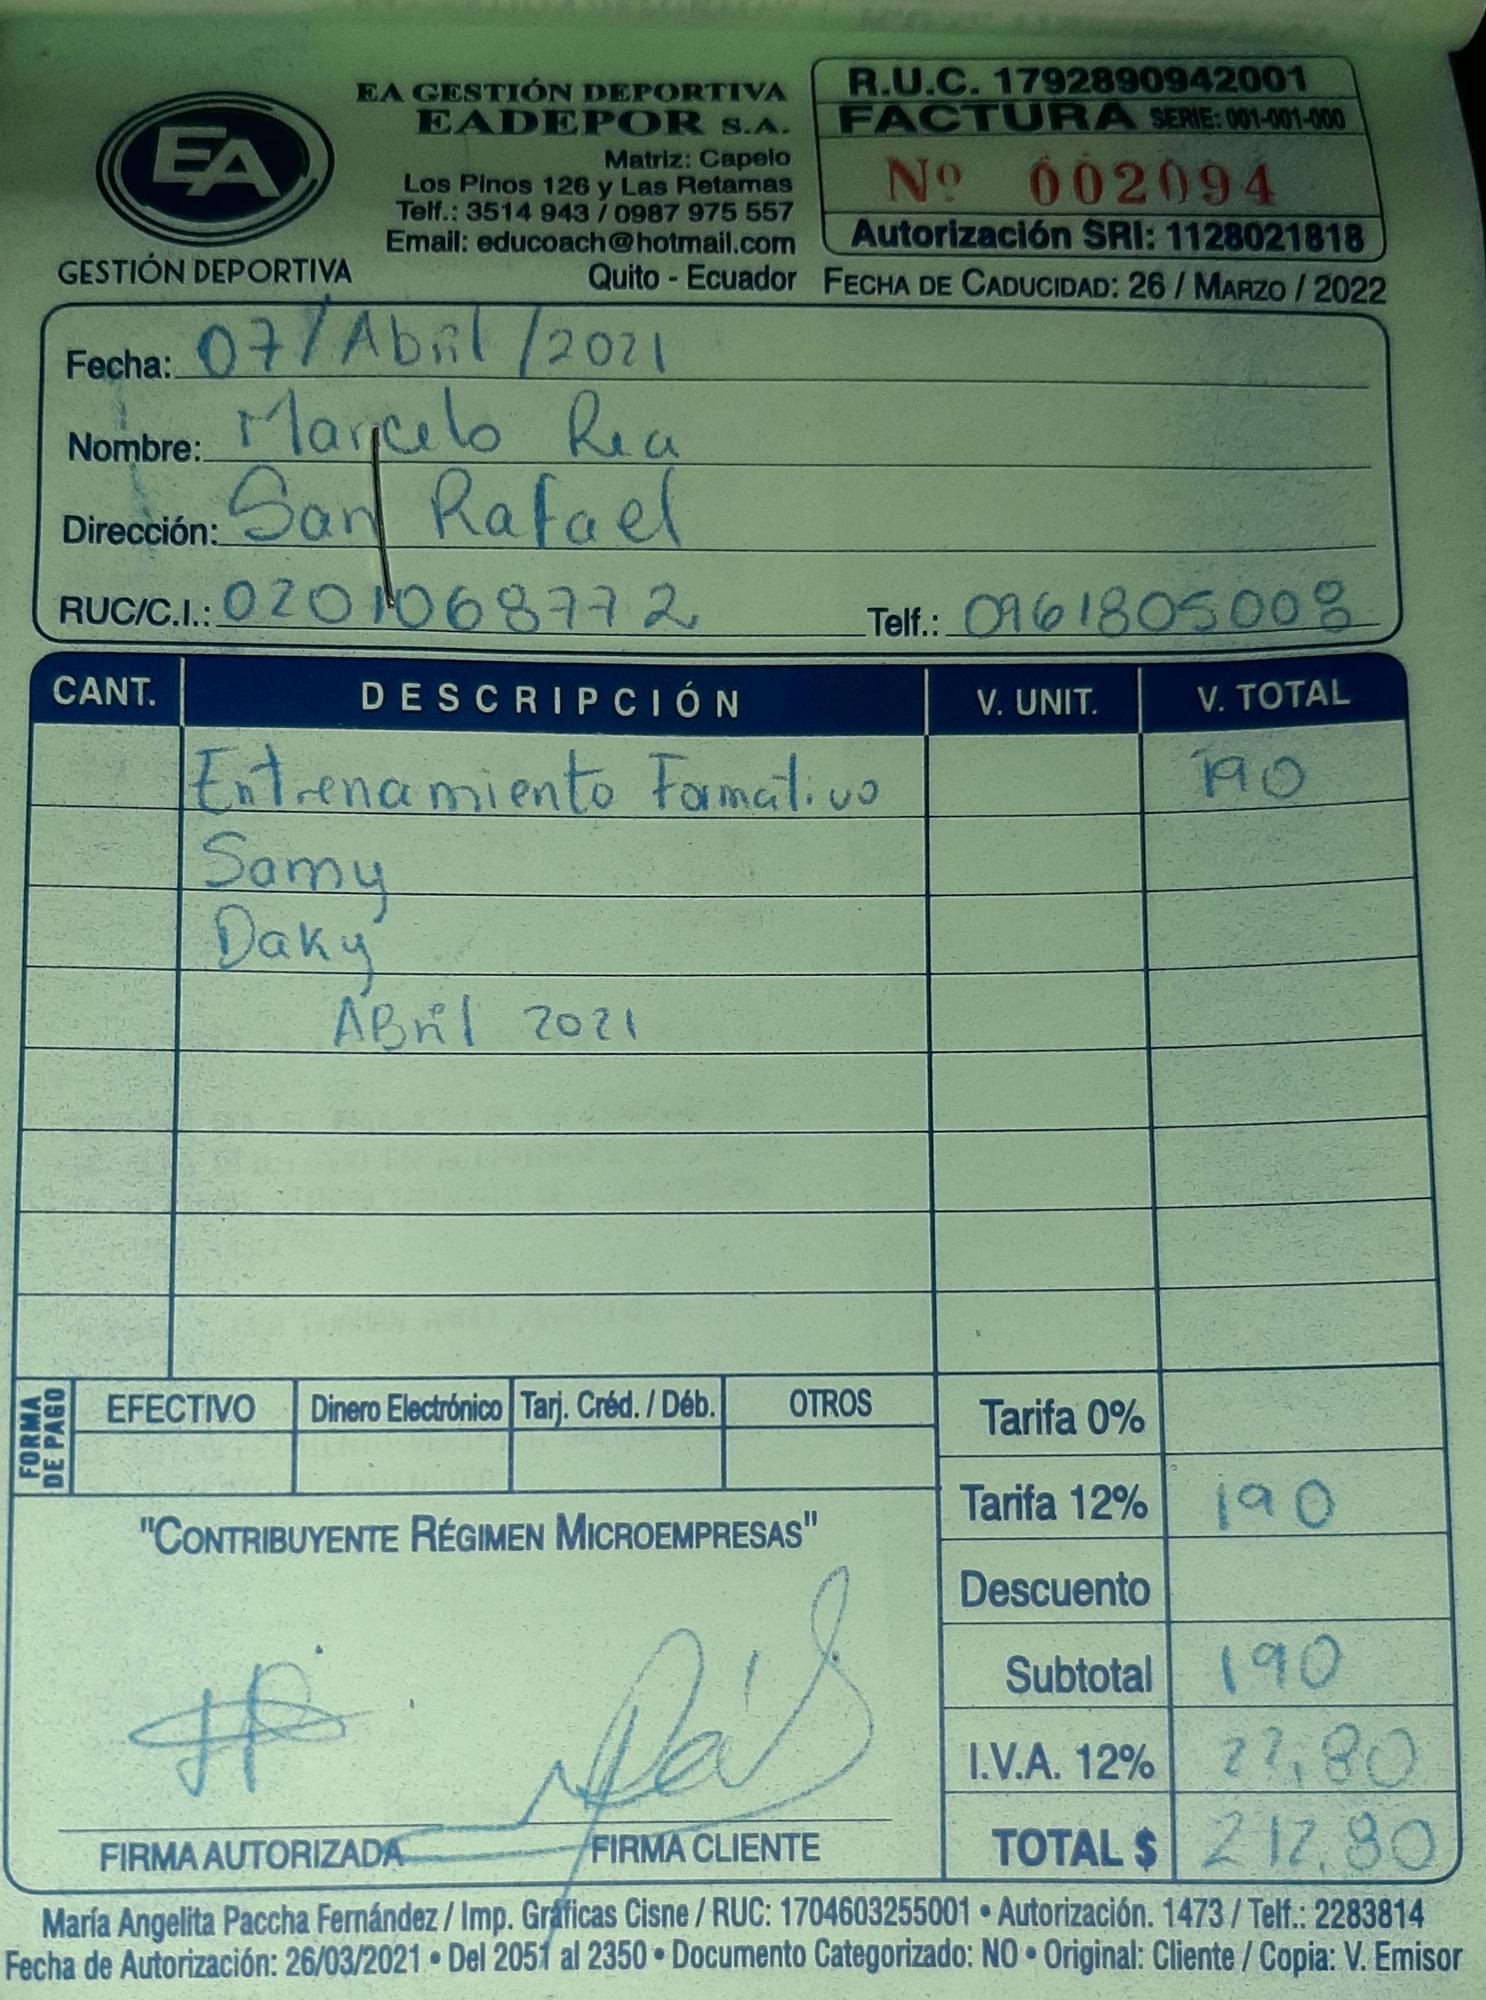 EA
GESTIÓN DEPORTIVA
EA GESTIÓN DEPORTIVA
EADEPOR S.A.
Matriz: Capelo
Los Pinos 126 y Las Retamas
Telf.: 3514 943 / 0987 975 557
Email: educoach@hotmail.com
Quito - Ecuador
R.U.C. 1792890942001
FACTURA SERIE: 001-001-000
Nº 002094
Autorización SRI: 1128021818
FECHA DE CADUCIDAD: 26 / MARZO / 2022
Fecha: 07/Abril/2021
Nombre: Marcelo Rea
Dirección: San Rafael
RUC/C.I.: 0201068772 Telf.: 0961805008
CANT. DESCRIPCIÓN V. UNIT. V. TOTAL
Entrenamiento Formativo 190
Samy
Daky
ABril 2021
FORMA DE PAGO
EFECTIVO Dinero Electrónico Tarj. Créd. / Déb. OTROS
Tarifa 0%
Tarifa 12% 190
"CONTRIBUYENTE RÉGIMEN MICROEMPRESAS"
Descuento
Subtotal 190
I.V.A. 12% 22,80
TOTAL $ 212,80
FIRMA AUTORIZADA FIRMA CLIENTE
María Angelita Paccha Fernández / Imp. Gráficas Cisne / RUC: 1704603255001 • Autorización. 1473 / Telf.: 2283814
Fecha de Autorización: 26/03/2021 • Del 2051 al 2350 • Documento Categorizado: NO • Original: Cliente / Copia: V. Emisor